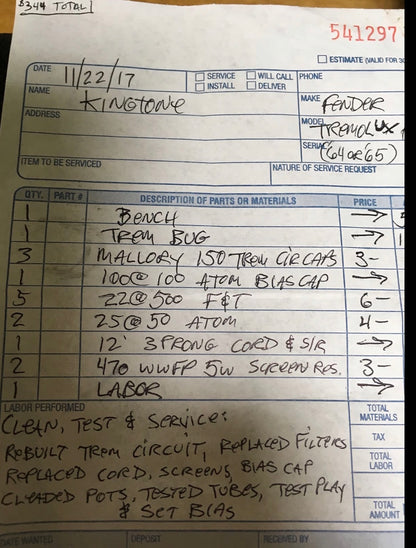 $344 TOTAL
541297
ESTIMATE (VALID FOR 30
DATE 11/22/17 SERVICE WILL CALL PHONE
INSTALL DELIVER
NAME KINGTONE MAKE FENDER
ADDRESS MODEL TREMOLUX
SERIAL (64 OR 65)
ITEM TO BE SERVICED NATURE OF SERVICE REQUEST
QTY. PART # DESCRIPTION OF PARTS OR MATERIALS PRICE
1 BENCH →
1 TREM BUG → 1
3 MALLORY 150 TREM CIR CAPS 3-
1 100@100 ATOM BIAS CAP →
5 22@500 F&T 6-
2 25@50 ATOM 4-
1 12' 3 PRONG CORD & S/R →
2 470 WWFP 5W SCREEN RES. 3-
1 LABOR →
LABOR PERFORMED TOTAL MATERIALS
CLEAN, TEST & SERVICE:
REBUILT TREM CIRCUIT, REPLACED FILTERS TAX
REPLACED CORD, SCREENS, BIAS CAP TOTAL LABOR
CLEADED POTS, TESTED TUBES, TEST PLAY
& SET BIAS TOTAL AMOUNT
DATE WANTED DEPOSIT RECEIVED BY